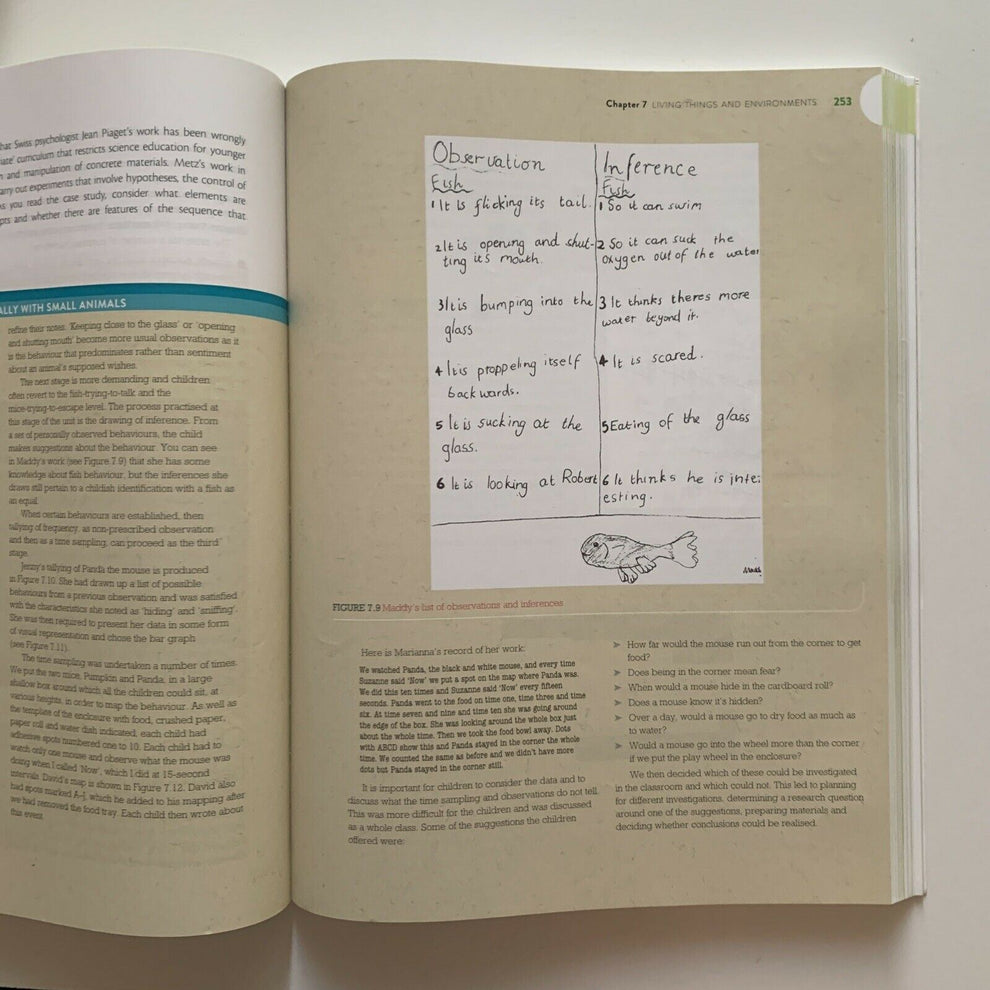 hat Swiss psychologist Jean Piaget's work has been wrongly
iate' curriculum that restricts science education for younger
n and manipulation of concrete materials. Metz's work in
arry out experiments that involve hypotheses, the control of
s you read the case study, consider what elements are
pts and whether there are features of the sequence that
ALLY WITH SMALL ANIMALS
refine their notes. 'Keeping close to the glass' or 'opening
and shutting mouth' become more usual observations as it
is the behaviour that predominates rather than sentiment
about an animal's supposed wishes.
The next stage is more demanding and children
often revert to the fish-trying-to-talk and the
mice-trying-to-escape level. The process practised at
this stage of the unit is the drawing of inference. From
a set of personally observed behaviours, the child
makes suggestions about the behaviour. You can see
in Maddy's work (see Figure 7.9) that she has some
knowledge about fish behaviour, but the inferences she
draws still pertain to a childish identification with a fish as
an equal.
When certain behaviours are established, then
tallying of frequency, as non-prescribed observation
and then as a time sampling, can proceed as the third
stage.
Jenny's tallying of Panda the mouse is produced
in Figure 7.10. She had drawn up a list of possible
behaviours from a previous observation and was satisfied
with the characteristics she noted as 'hiding' and 'sniffing'.
She was then required to present her data in some form
of visual representation and chose the bar graph
(see Figure 7.11).
The time sampling was undertaken a number of times.
We put the two mice, Pumpkin and Panda, in a large
shallow box around which all the children could sit, at
various heights, in order to map the behaviour. As well as
the template of the enclosure with food, crushed paper,
paper roll and water dish indicated, each child had
adhesive spots numbered one to 10. Each child had to
watch only one mouse and observe what the mouse was
doing when I called 'Now', which I did at 15-second
intervals. David's map is shown in Figure 7.12. David also
had spots marked A–J, which he added to his mapping after
we had removed the food tray. Each child then wrote about
this event.
Chapter 7 LIVING THINGS AND ENVIRONMENTS 253
Observation
Fish
1 It is flicking its tail.
2 It is opening and shut-
ting it's mouth.
3 It is bumping into the
glass
4 It is proppeling itself
backwards.
5 It is sucking at the
glass.
6 It is looking at Robert
Inference
Fish
1 So it can swim
2 So it can suck the
oxygen out of the water
3 It thinks theres more
water beyond it.
4 It is scared.
5 Eating of the glass
6 It thinks he is inter
esting.
FIGURE 7.9 Maddy's list of observations and inferences
Here is Marianna's record of her work:
We watched Panda, the black and white mouse, and every time
Suzanne said 'Now' we put a spot on the map where Panda was.
We did this ten times and Suzanne said 'Now' every fifteen
seconds. Panda went to the food on time one, time three and time
six. At time seven and nine and time ten she was going around
the edge of the box. She was looking around the whole box just
about the whole time. Then we took the food bowl away. Dots
with ABCD show this and Panda stayed in the corner the whole
time. We counted the same as before and we didn't have more
dots but Panda stayed in the corner still.
It is important for children to consider the data and to
discuss what the time sampling and observations do not tell.
This was more difficult for the children and was discussed
as a whole class. Some of the suggestions the children
offered were:
➤ How far would the mouse run out from the corner to get
food?
➤ Does being in the corner mean fear?
➤ When would a mouse hide in the cardboard roll?
➤ Does a mouse know it's hidden?
➤ Over a day, would a mouse go to dry food as much as
to water?
➤ Would a mouse go into the wheel more than the corner
if we put the play wheel in the enclosure?
We then decided which of these could be investigated
in the classroom and which could not. This led to planning
for different investigations, determining a research question
around one of the suggestions, preparing materials and
deciding whether conclusions could be realised.